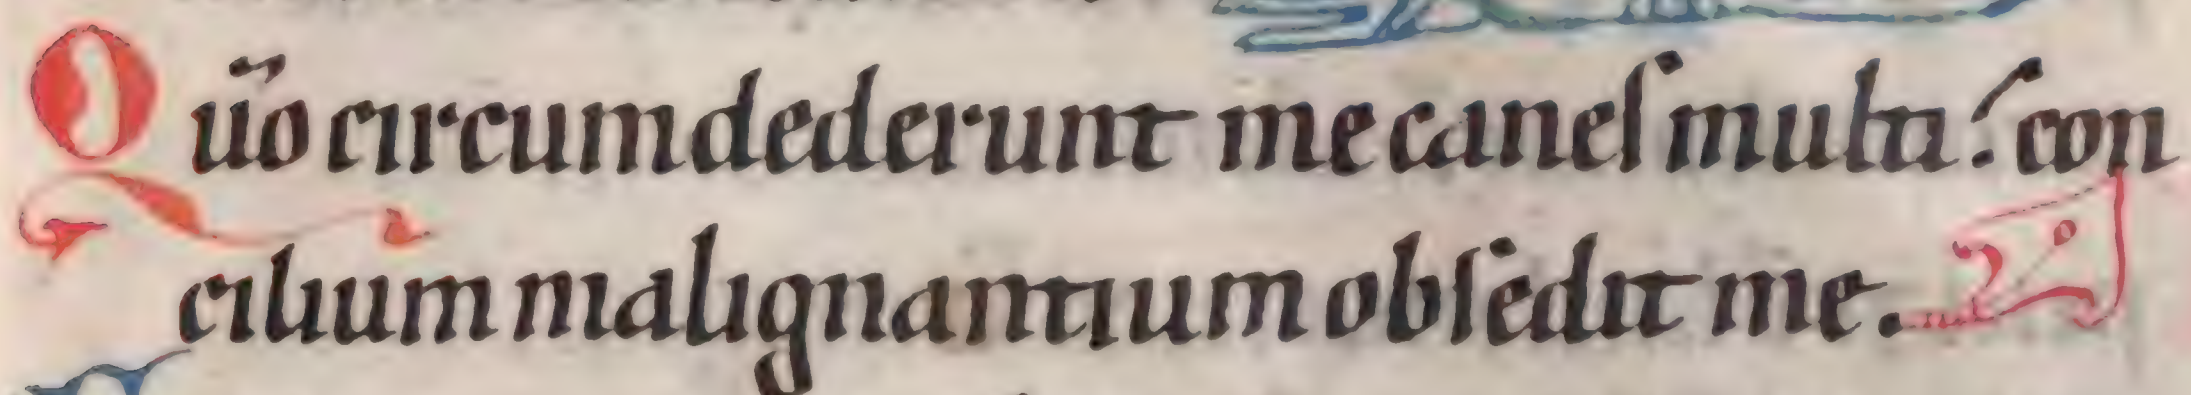 Qūo circumdederunt me canes multi: con
cilium malignantium obsedit me.